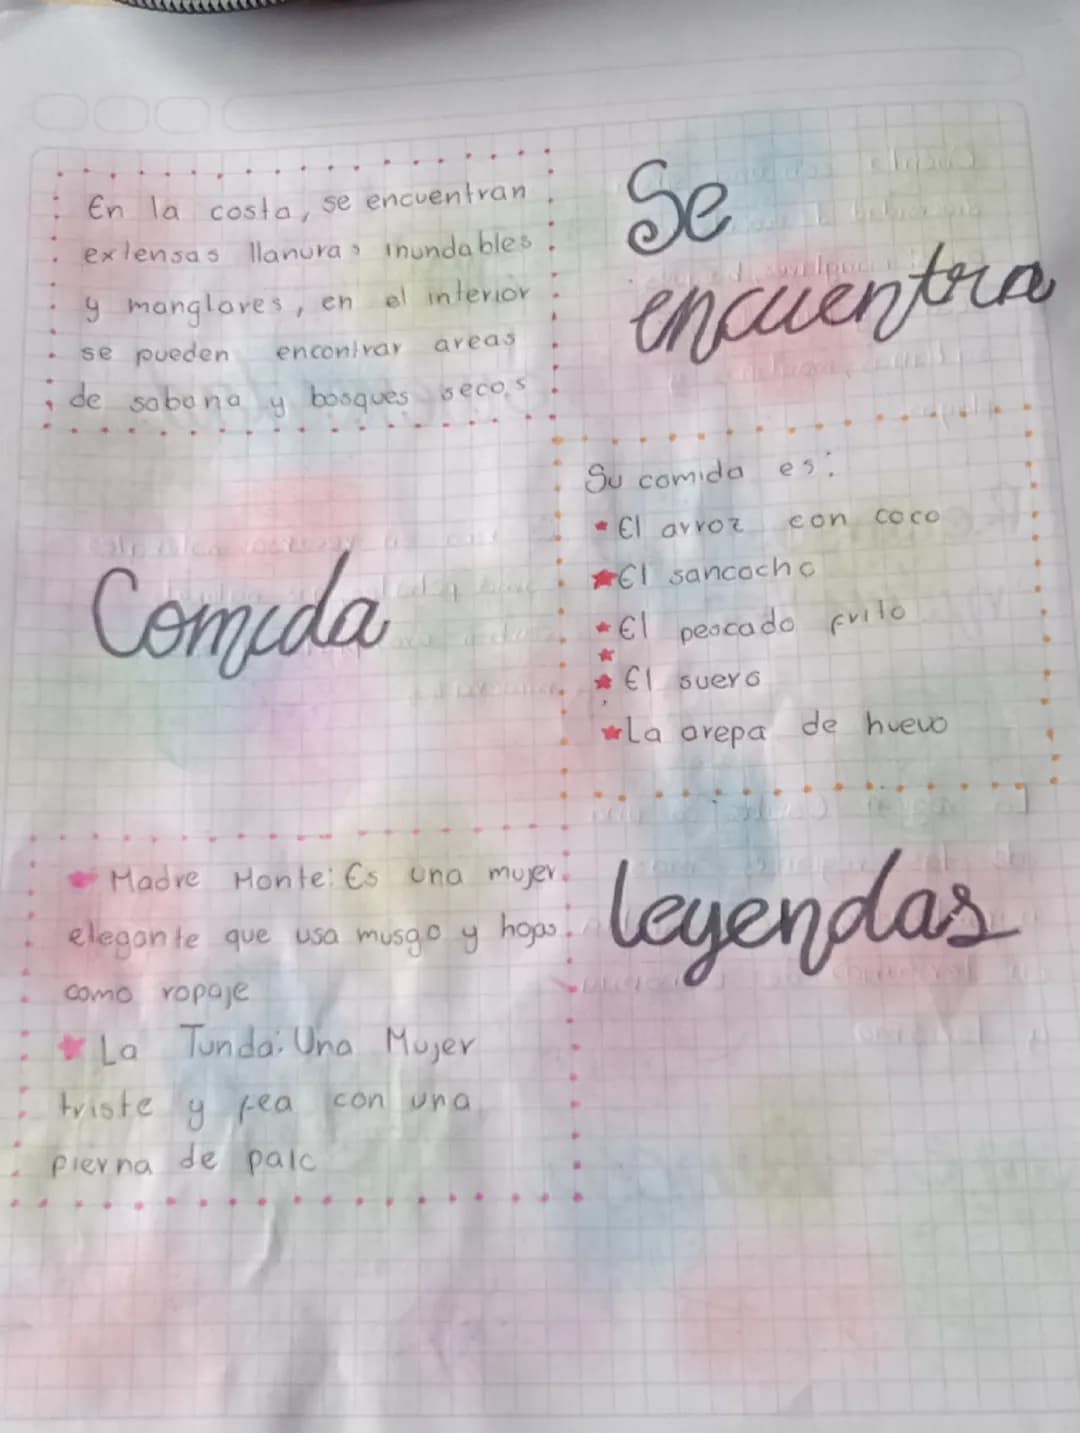 En la costa, se encuentran
extensas llanuras inundables
y manglares, en el interior
se pueden encontrar areas
de sabana y bosques secos
Se
encuentra
Comida
Su comida es:
El arroz con coco
El sancocho
El pescado frito
El suero
La arepa de huevo
Madre Monte: Es una mujer
elegante que usa musgo y hojas
como ropaje
La Tunda: Una Mujer
triste y fea con una
pierna de palo
leyendas